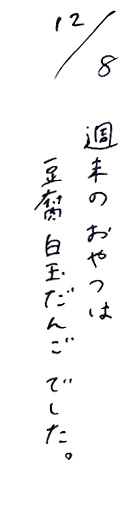 12/8
週末のおやつは
豆腐白玉だんごでした。